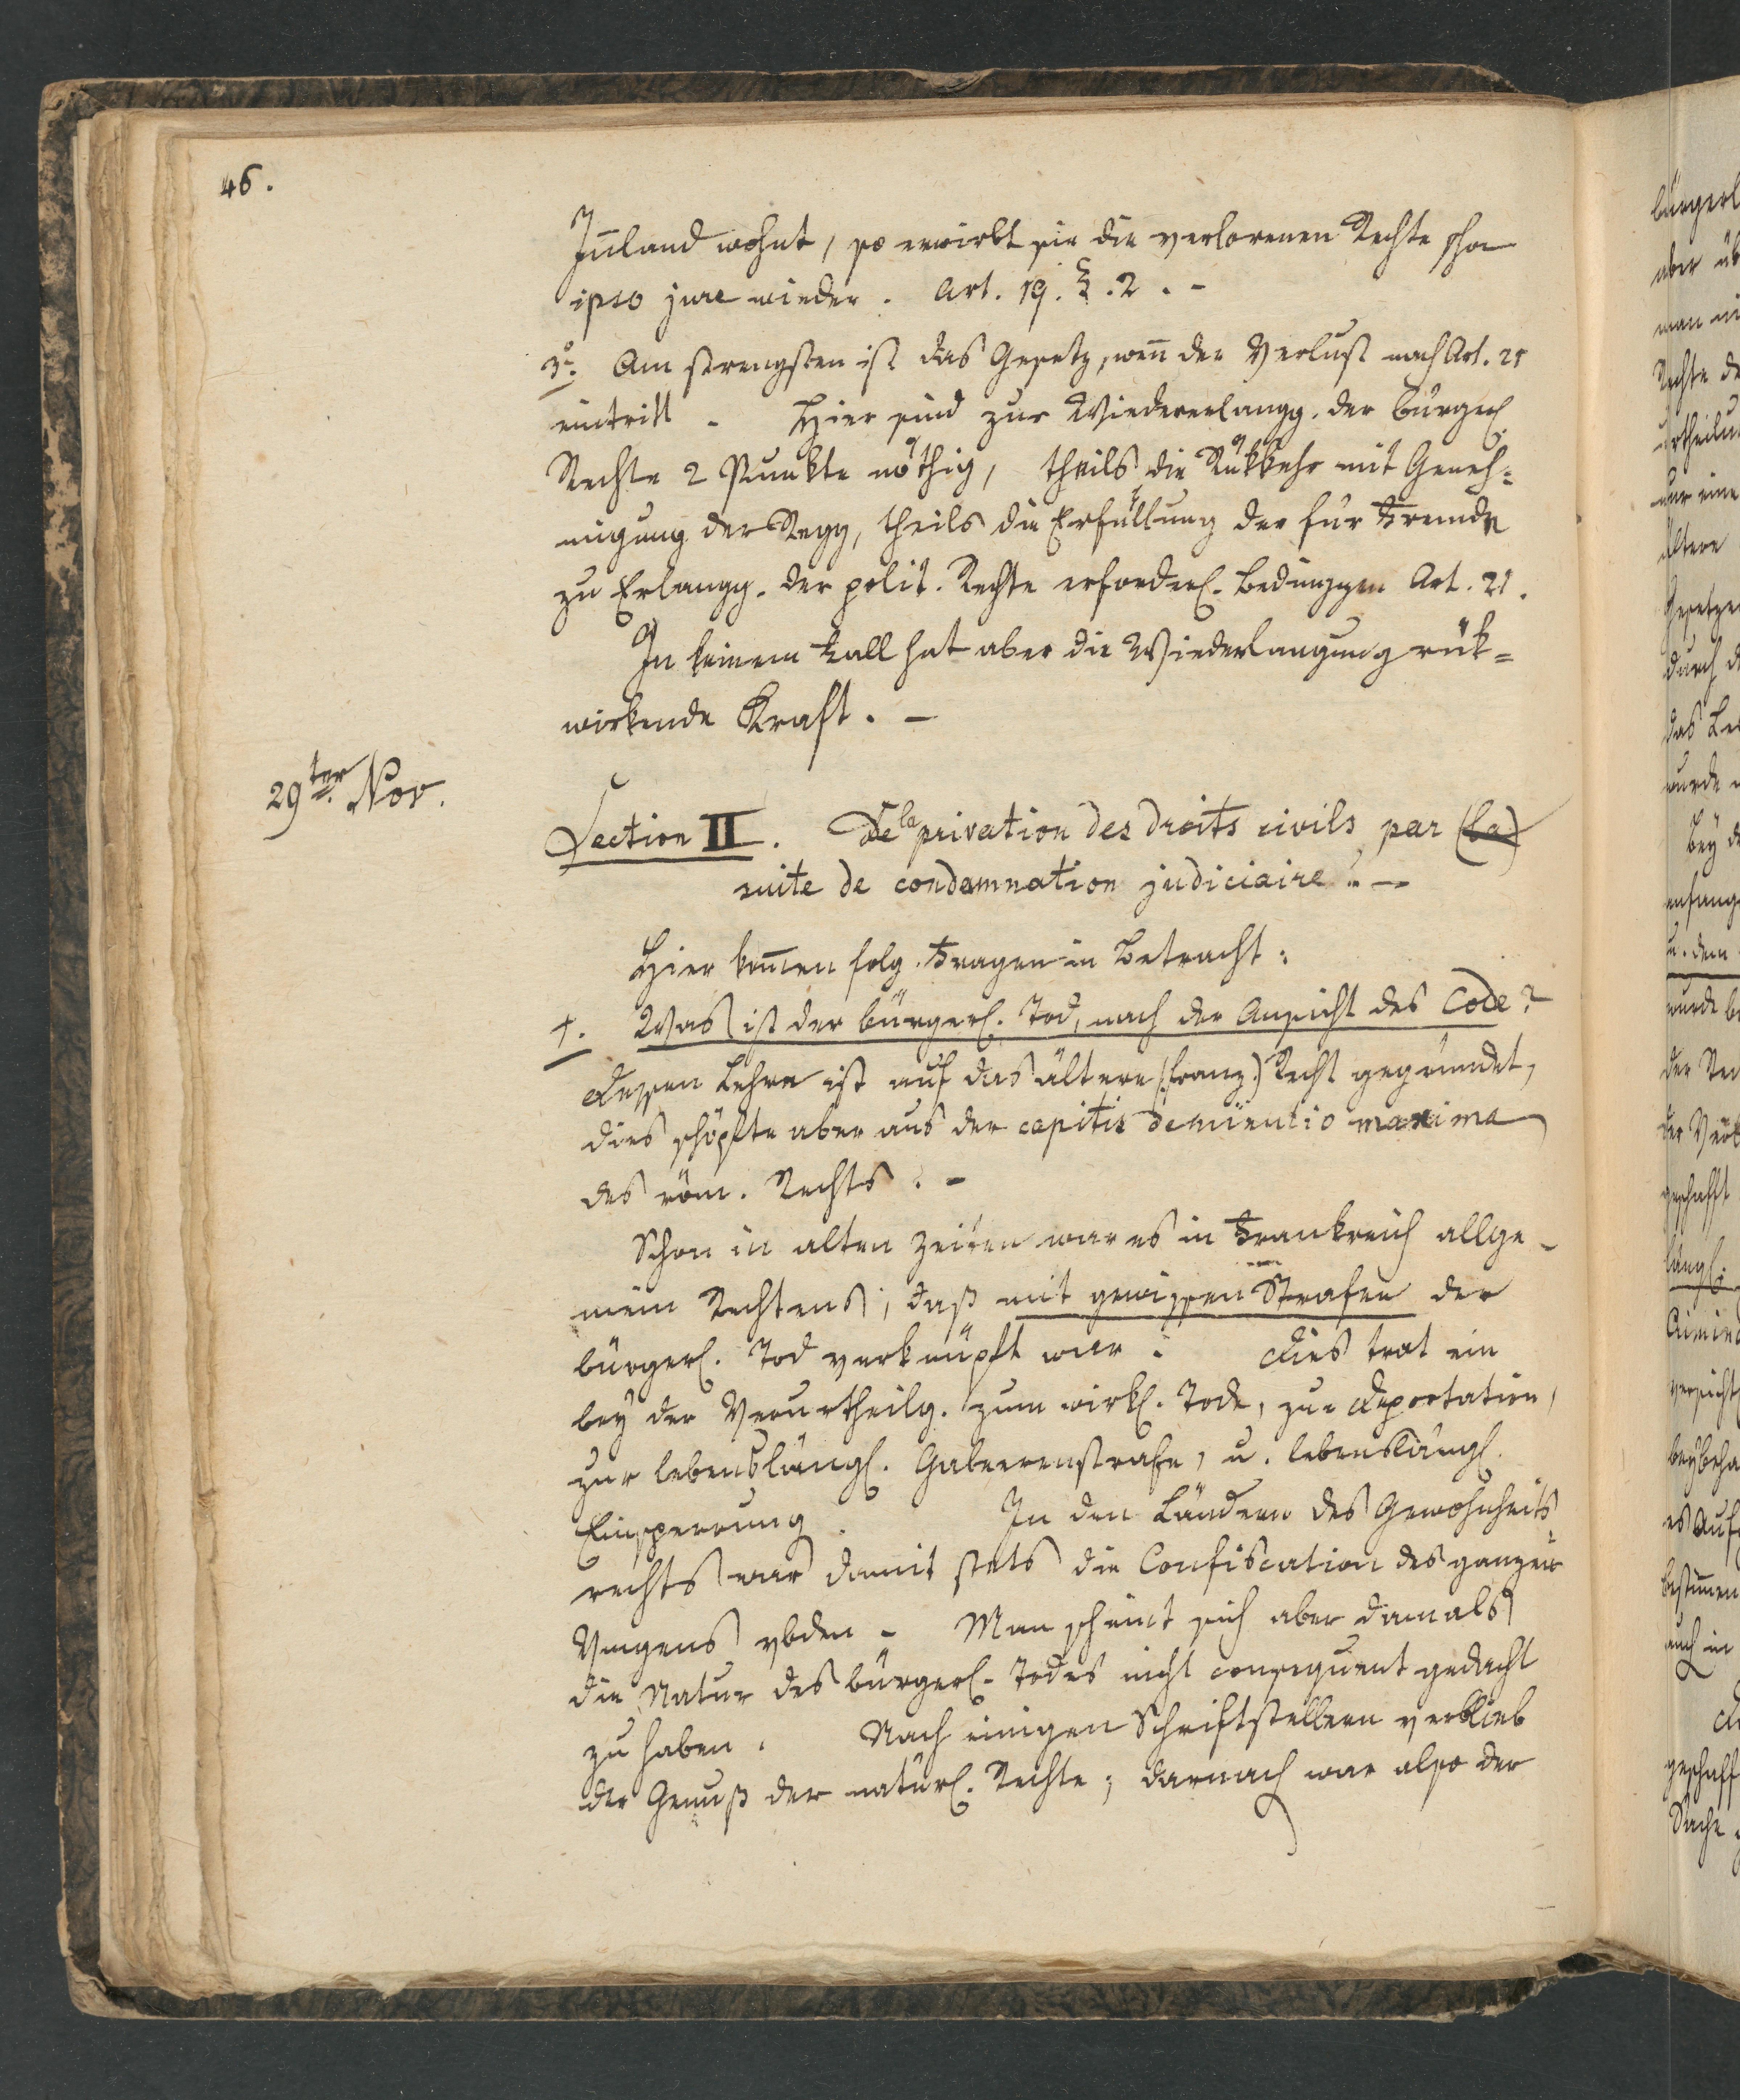 46.
Jn̅land wohnt, so erwirbt sie die verlorenen Rechte schon
ipso jure wieder. Art. 19. §. 2. -
3°. Am strengsten ist das Gesetz, wen̅ der Verlust nach Art. 21
eintritt. Hier sind zur Wiedererlangg. der bürgerl.
Rechte 2 Punkte nöthig, theils die Rükkehr mit Geneh=
migung der Regg, theils die Erfüllung der für Fremde
zu Erlangg. der polit. Rechte erforderl. Bedinggen Art. 21.
Jn keinem Fall hat aber die Wiederlangung rük=
wirkende Kraft. -
29ter Nov.
Section II. De la privation des droits civils par (la)
suite de condamnation judiciaire. -
Hier kom̅en folg. Fragen in Betracht:
1. Was ist der bürgerl. Tod, nach der Ansicht des Code?
Dessen Lehre ist auf das ältere (franz.) Recht gegründet,
dies schöpfte aber aus der capitis deminutio maxima
des röm. Rechts. -
Schon in alten Zeiten war es in Frankreich allge-
mein Rechtens, daß mit gewissen Strafen der
bürgerl. Tod verknüpft war. Dies trat ein
bey der Verurtheilg. zum wirkl. Tode, zur Deportation,
zur lebenslängl. Galeerenstrafe, u. lebenslängl.
Einsperrung. Jn den Ländern des Gewohnheits=
rechts war damit stets die Confiscation des ganzen
Vmgens vbden. Man scheint sich aber damals
die Natur des bürgerl. Todes nicht consequent gedacht
zu haben. Nach einigen Schriftstellern verblieb
der Genuß der natürl. Rechte; darnach war also der